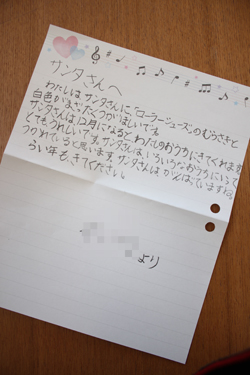 サンタさんへ
わたしは、サンタさんに「ローラーシューズ」のむらさきと
白色がまざったくつがほしいです。
サンタさんは12月になると、わたしのおうちにきてくれます
とてもうれしいです。サンタさんは、いろいろなおうちにいって
つかれていると思います。サンタさんは がんばっていますね。
らい年も、きてください。
より